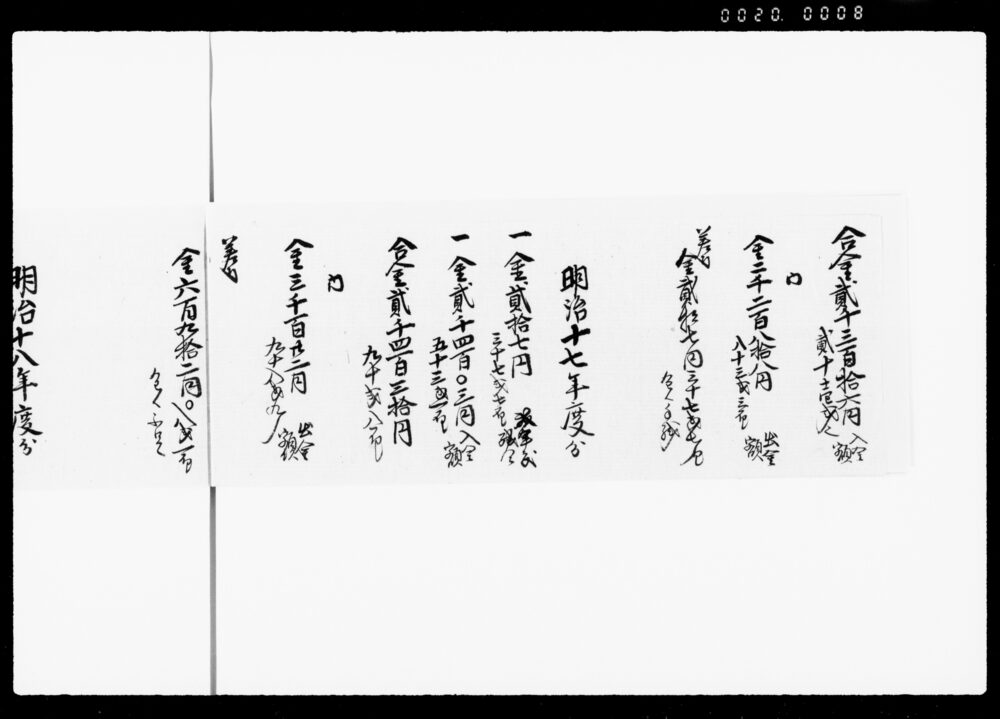 0020. 0008
合金貳千三百拾六円 入金額
貳十壱銭
内
金二千二百八拾八円 出金額
八十三銭三厘
差引
金貳拾七円三十七銭七厘
明治十七年度分
一金貳拾七円
三十七銭七厘
一金貳千四百〇三円 入金額
五十三銭一厘
合金貳千四百三拾円
九十銭八厘
内
金三千百廿二円 出金額
九十八銭九厘
差引
金六百九拾二円〇八銭一厘
明治十八年度分